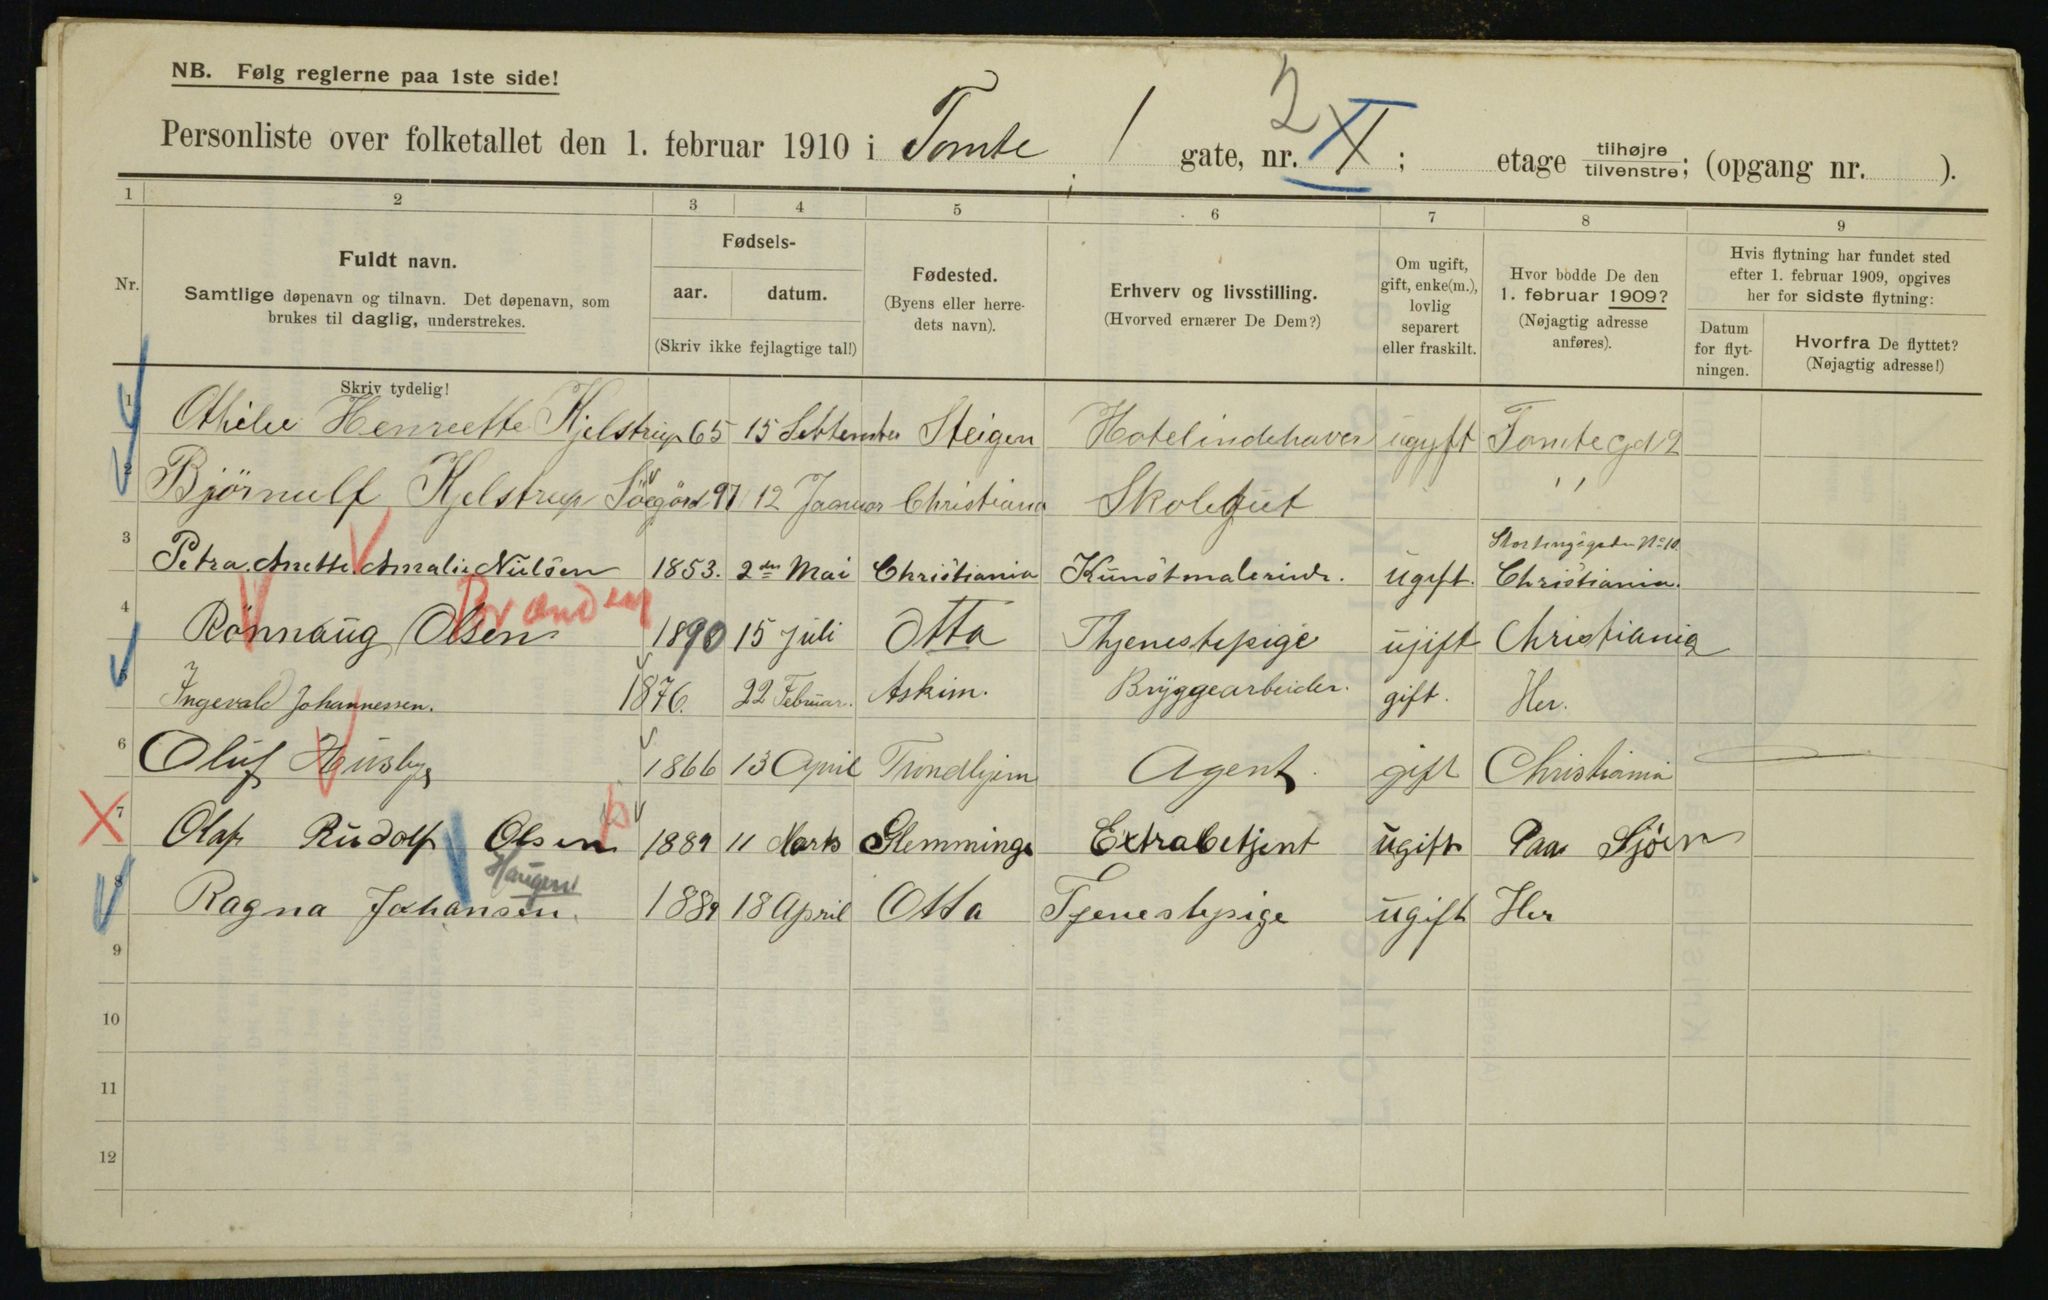 NB. Følg reglerne paa 1ste side!
Personliste over folketallet den 1. februar 1910 i Tomte gate, nr. 2 XI; etage tilhøjre tilvenstre; (opgang nr. ).
1 2 3 4 5 6 7 8 9
Nr. Fuldt navn. Samtlige døpenavn og tilnavn. Det døpenavn, som brukes til daglig, understrekes. Skriv tydelig!
Fødsels- aar. datum. (Skriv ikke fejlagtige tal!)
Fødested. (Byens eller herredets navn).
Erhverv og livsstilling. (Hvorved ernærer De Dem?)
Om ugift, gift, enke(m.), lovlig separert eller fraskilt.
Hvor bodde De den 1. februar 1909? (Nøjagtig adresse anføres).
Hvis flytning har fundet sted efter 1. februar 1909, opgives her for sidste flytning:
Datum for flytningen. Hvorfra De flyttet? (Nøjagtig adresse!)
1 Othilie Henriette Kjelstrup 65 15 September Steigen Hotelindehaver ugift Tomtegd 2
2 Bjørnulf Kjelstrup 97 12 Januar Christiania Skolegut ,,
Stortingsgaden No 10
3 Petra Anette Amalie Nielsen 1853. 2den Mai Christiania Kunstmalerinde. ugift. Christiania.
Brænden
4 Rønnaug Olsen 1890 15 juli Otta Thjenestepige ugift Christiania
5 Ingevald Johannessen. 1876. 22 Februar. Askim. Bryggearbeider. gift. Her.
6 Oluf Husby 1866 13 April Trondhjem Agent. gift Christiania
7 Olaf Rudolf Olsen 1889 11 Marts Glemminge Extrabetjent ugift Paa Sjøen
Haugen
8 Ragna Johansen. 1889 18 April Otta Tjenestepige ugift Her
9
10
11
12